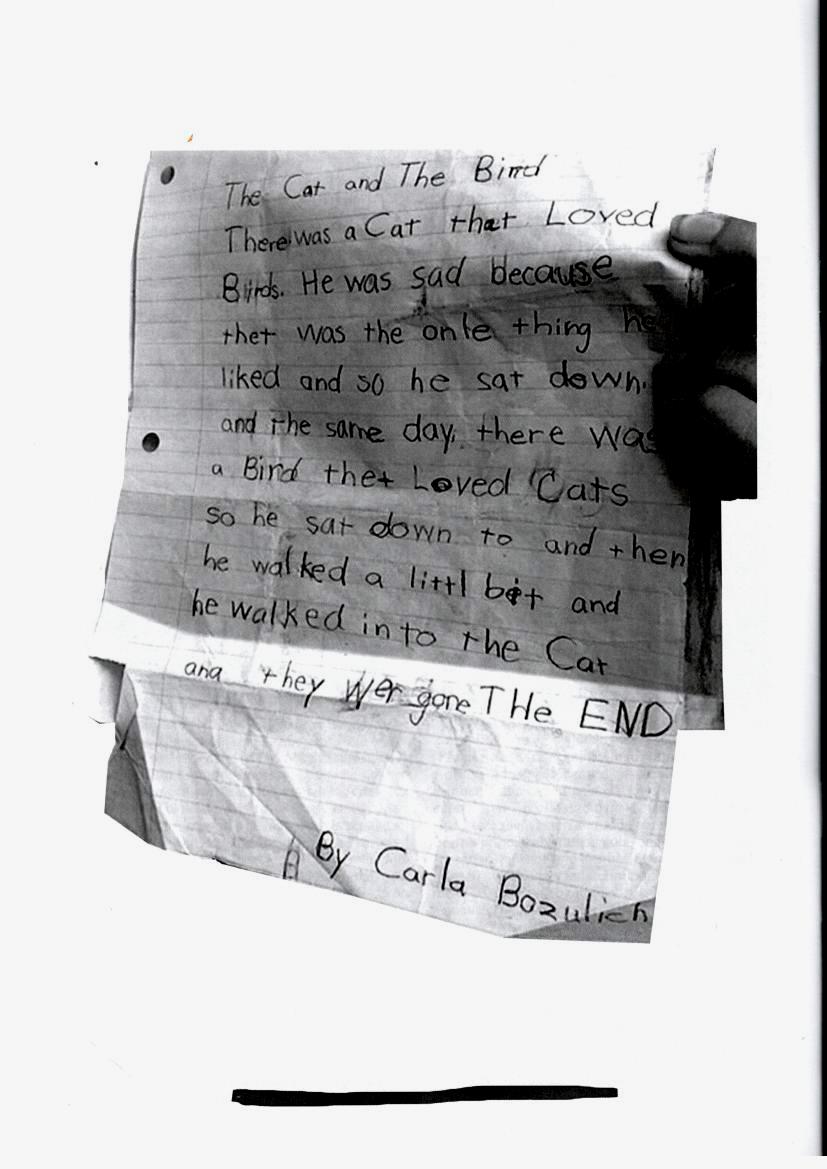 The Cat and The Bird
There was a Cat that Loved
Birds. He was sad because
thet was the onle thing he
liked and so he sat down.
and the same day, there was
a Bird thet Loved Cats
so he sat down to and then
he walked a littl bit and
he walked in to the Cat
and they wer gone THe END
By Carla Bozulich